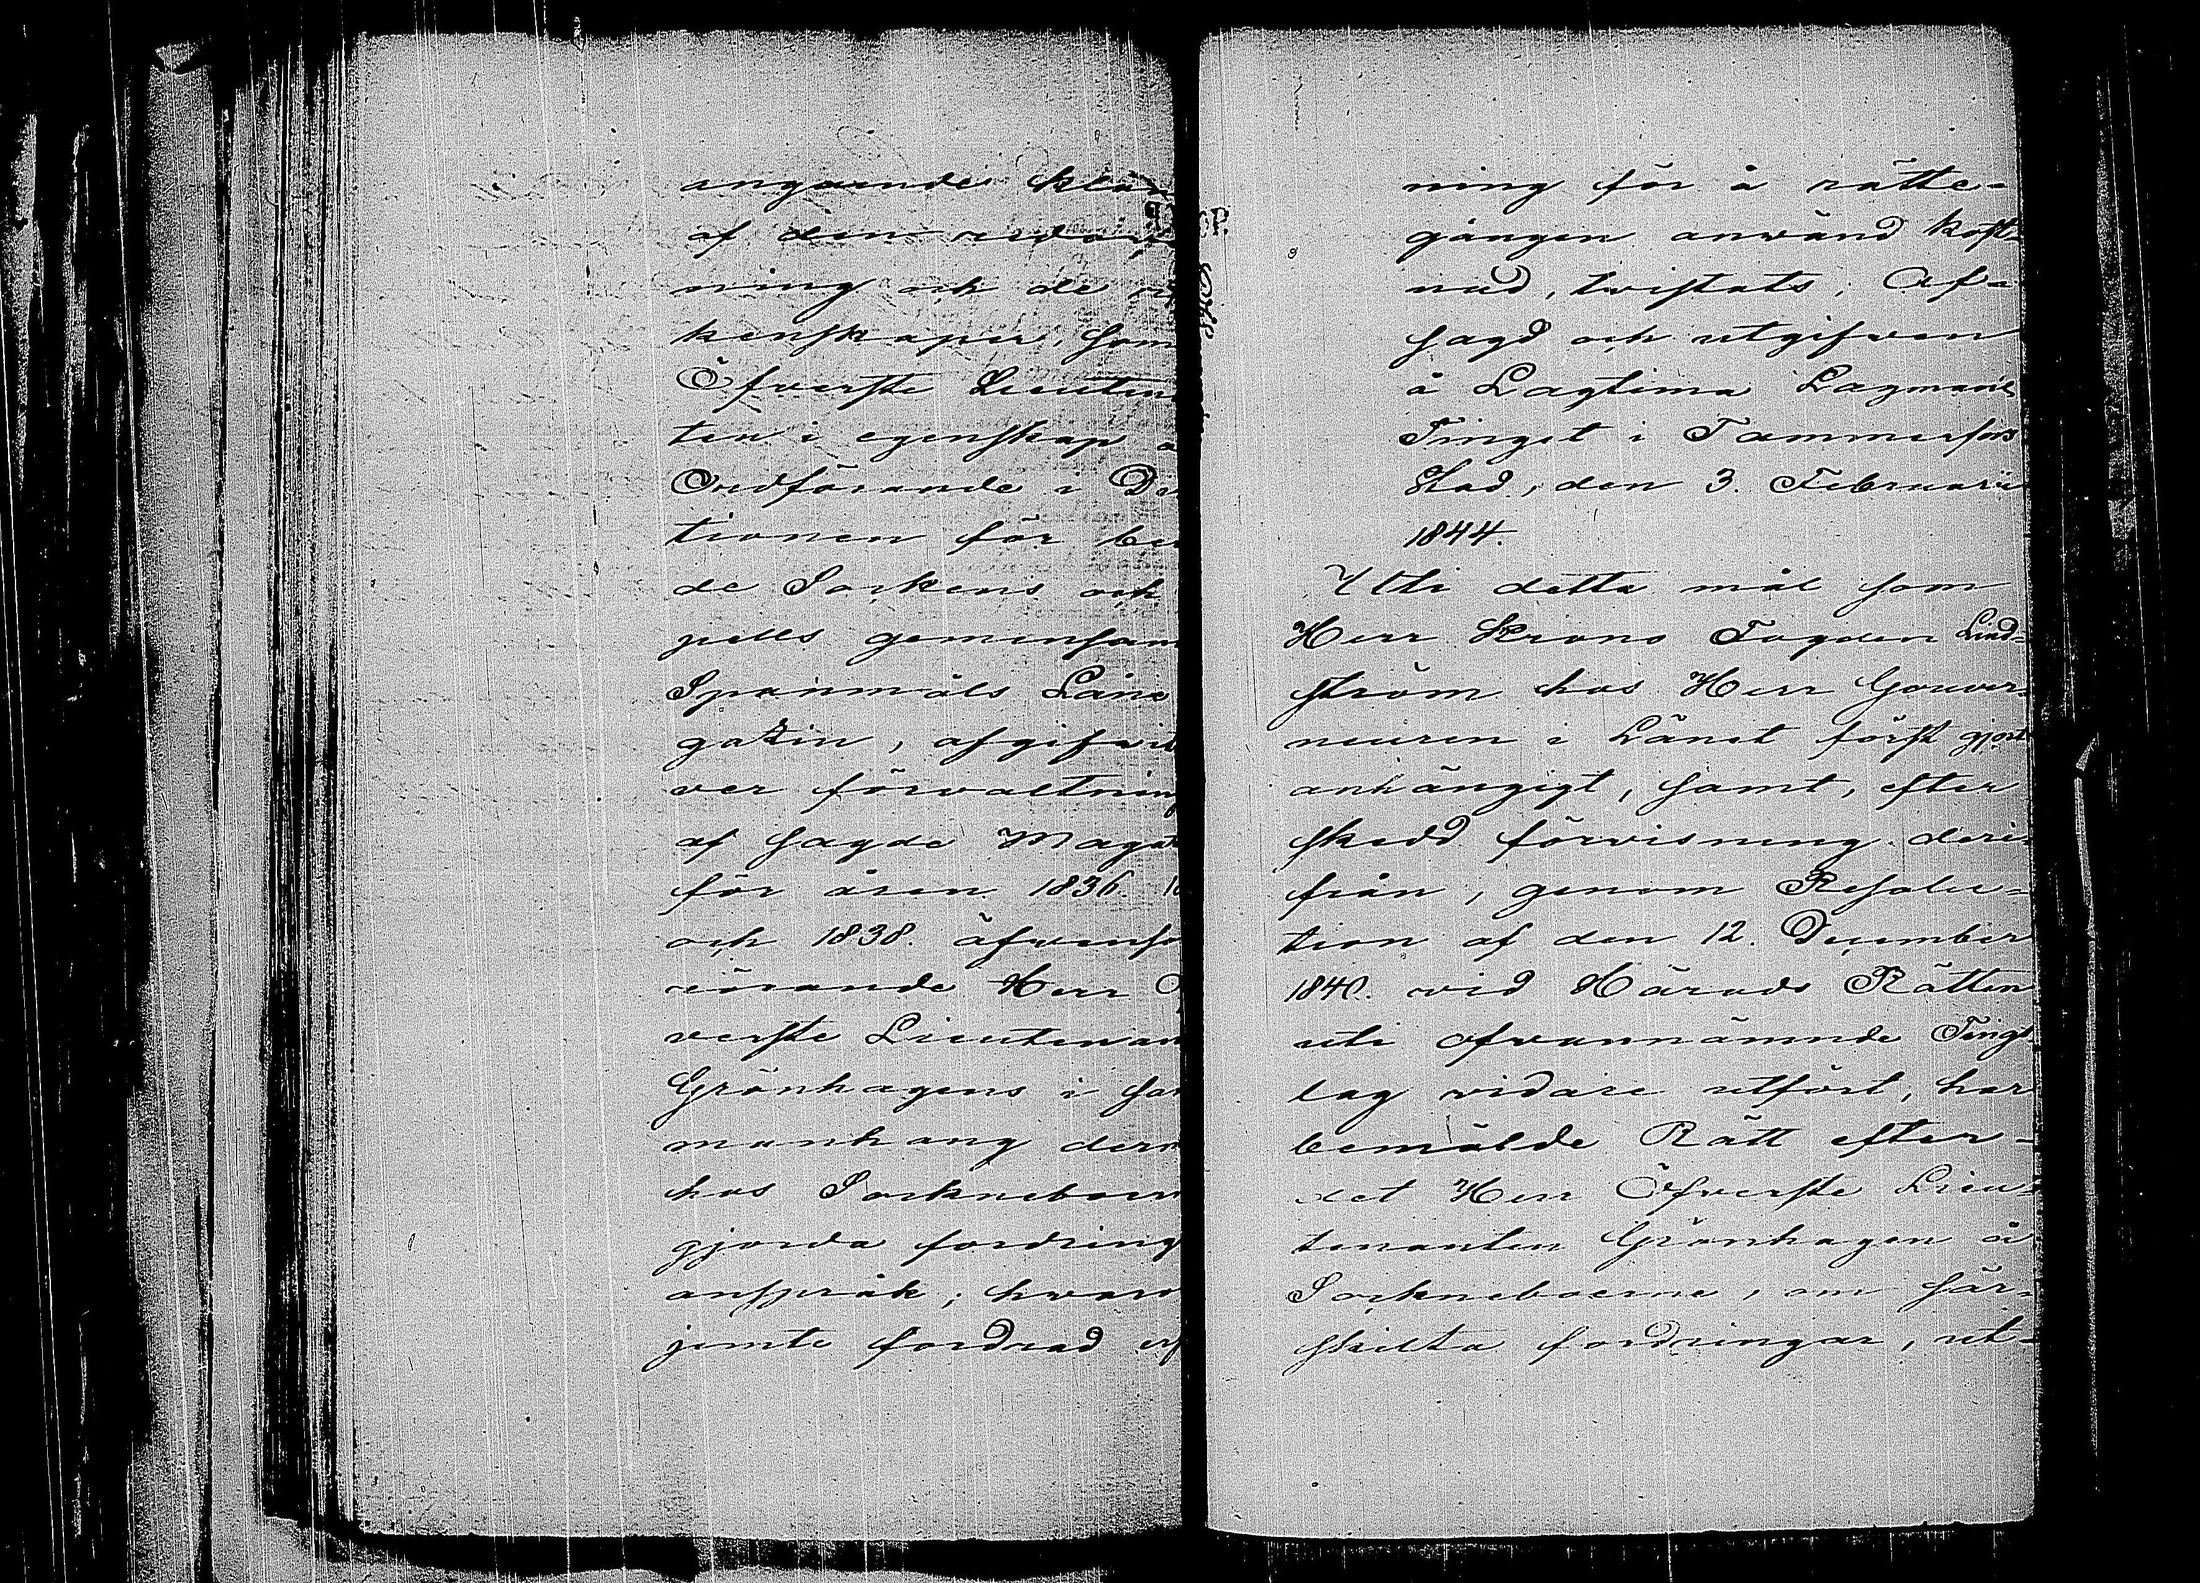 angående klan
af den redovis
ning och de rä
kenskaper, som
Öfverste Lieuten
ten i egenskap a
Ordförande i Di
tionen för be
de Sockens och
pells gemensam
Spanmåls Låne
gazin, afgifvit
ver förvaltning
af sagde Maga
för åren 1836. 18
och 1838. äfvenso
rörande Herr Öf
verste Lieutenan
Grönhagens i sam
manhang derm
hos Sockneboer
gjorda fordring
anspråk; hvar
jemte fordrad er
ning för å rätte-
gången använd kost-
nad, tvistats; Af-
sagd och utgifven
å Lagtima Lagmans
Tinget i Tammerfors
Stad, den 3. Februarii
1844.
Uti detta mål som
Herr Krono Fogden Lind-
ström hos Herr Gouver-
neuren i Länet först gjort
anhängigt, samt, efter
skedd förvisning deri-
från, genom Resolu-
tion af den 12. December
1840. vid Härads Rätten
uti ofvannämnde Tings-
lag vidare utfört, har
bemälde Rätt efter-
det Herr Öfverste Lieu-
tenanten Grönhagen å
Sockneboerne, om sär-
skilta fordringar, ut-